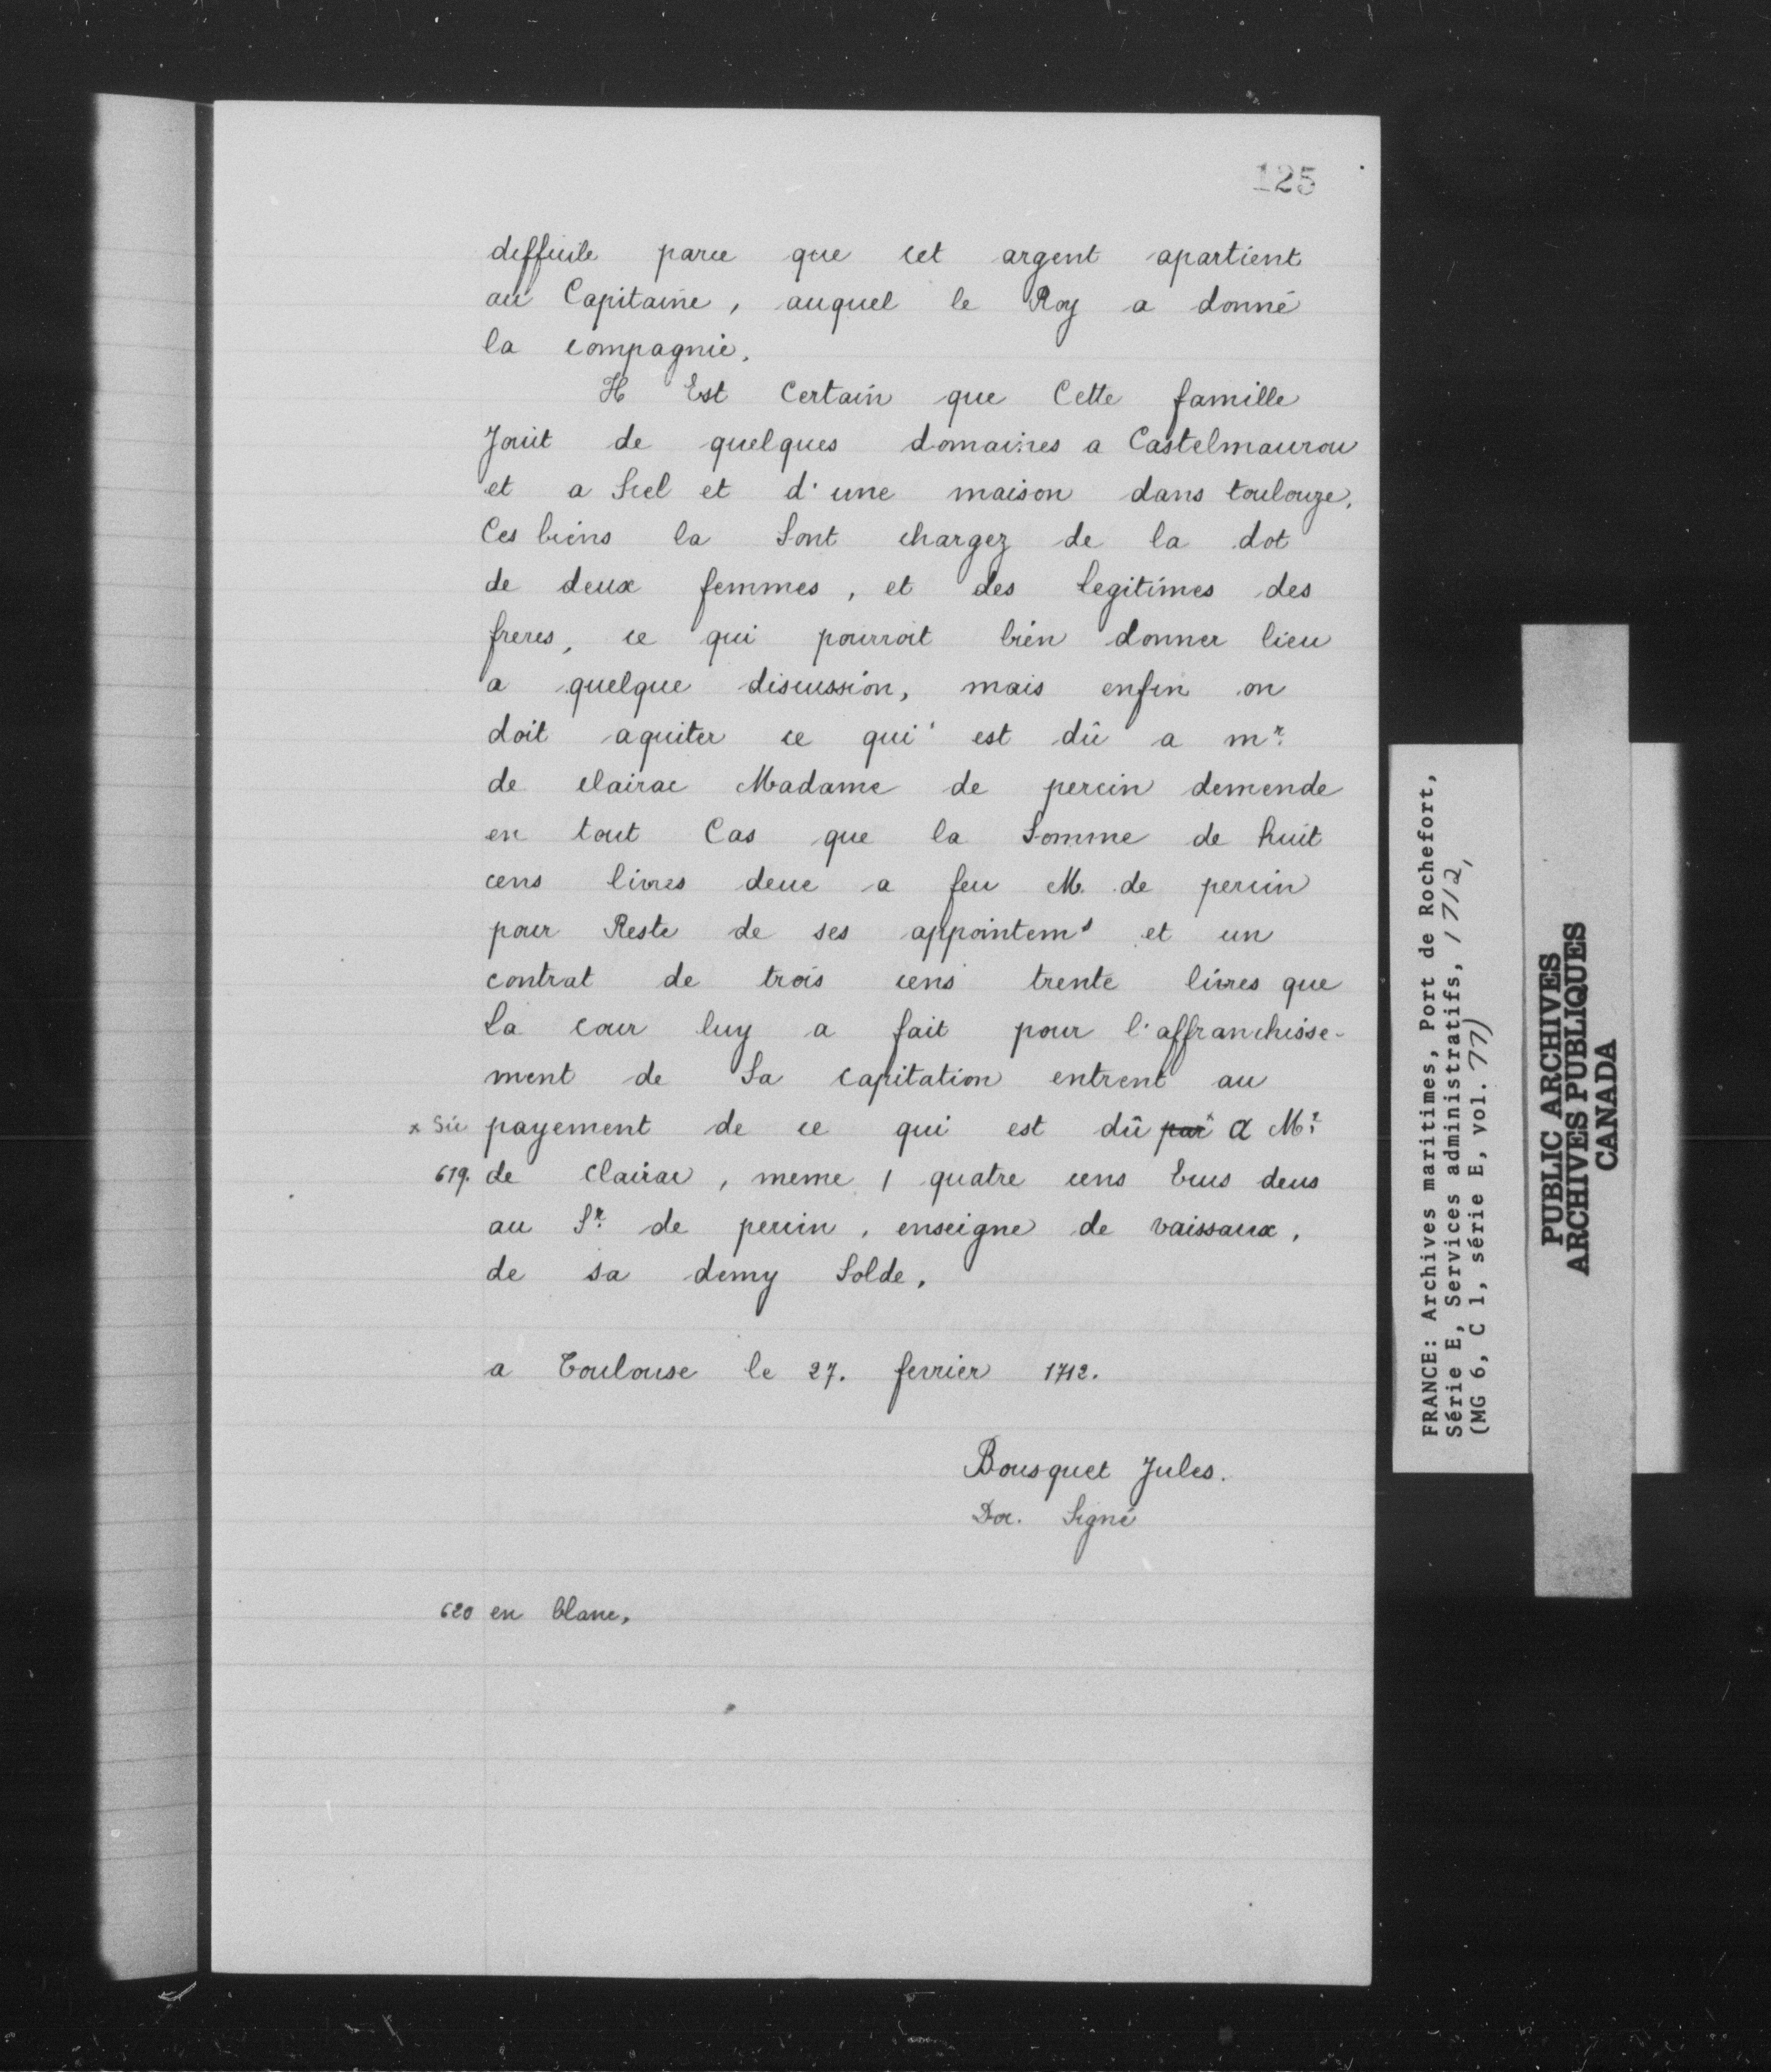 125
difficile parce que cet argent apartient
au Capitaine, auquel le Roy a donné
la compagnie.
Il Est Certain que Cette famille
Jouit de quelques domaines a Castelmaurou
et a Siel et d'une maison dans toulouze.
Ces biens la Sont chargez de la dot
de deux femmes, et des legitimes des
freres, ce qui pourroit bien donner lieu
a quelque discussion, mais enfin on
doit aquiter ce qui est dû a mr.
de clairac Madame de percin demende
en tout Cas que la Somme de huit
cens livres deue a feu M. de percin
pour Reste de ses appointems et un
contrat de trois cens trente livres que
la cour luy a fait pour l'affranchisse-
ment de Sa capitation entrent au
x Sic payement de ce qui est dû par x a Mr.
619. de Clairac, meme / quatre cens Ecus deus
au Sr. de percin, enseigne de vaissaux,
de sa demy Solde.
a Toulouse le 27. fevrier 1712.
Bousquet Jules.
Doc. Signé
620 en blanc,
FRANCE: Archives maritimes, Port de Rochefort,
Série E, Services administratifs, 1712,
(MG 6, C 1, série E, vol. 77)
PUBLIC ARCHIVES
ARCHIVES PUBLIQUES
CANADA